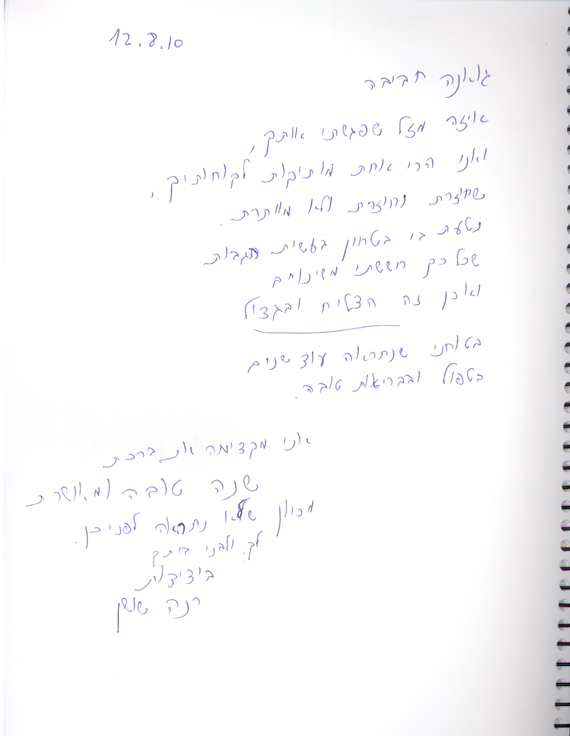 12.8.10
חביבה
איזה מזל שפגשתי אותך,
ואני הרי אחת מותיקות לקוחותיך,
שחוזרת וחוזרת ולא מוותרת.
נטעת בי בטחון בעשית הגבות
שכל כך חששתי משינויים
ואכן זה הצליח ובגדול
בטוחני שנתראה עוד שנים
בטפול ובבריאות טובה.
אני מקדימה את ברכת
שנה טובה ומאושרת
מכוון שלא נתראה לפני כן.
לך ולבני ביתך
בידידות
רנה ששון